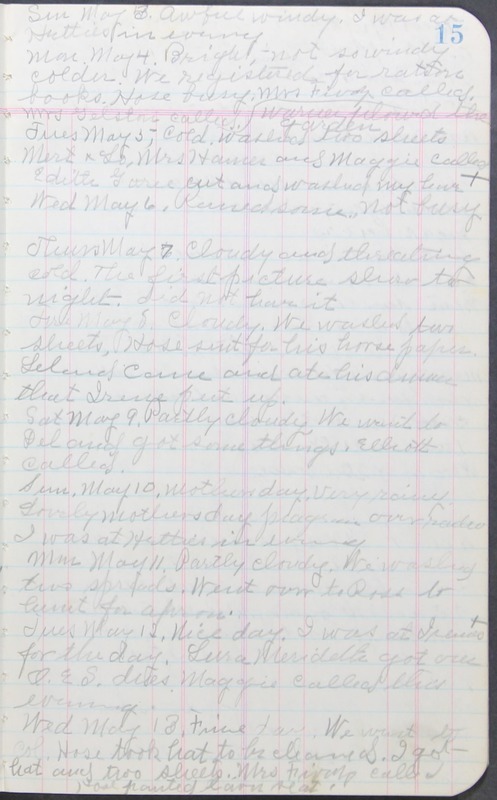 15
Sun May 3. Awful windy. I was at
Hetties in evening
Mon. May 4. Bright, not so windy
colder. We registered for ration
books. Hose busy. Mrs called.
Mrs called. Warner plowed the
garden
Tues May 5, Cold, washed two sheets
Mert & Mrs and Maggie called
Edith cut and washed my hair +
Wed May 6. Rained some, not busy
Thurs May 7. Cloudy and threating
cold. The first picture show to-
night. Did not have it
Fri May 8. Cloudy. We washed two
sheets, Hose sent for his horse paper.
Leland came and ate his dinner
that Irene put up.
Sat May 9. Partly cloudy We went to
Del and got some things. Elliott
called.
Sun. May 10, Mothers day, Very rainy
Lovely mothers day program over radio
I was at Hetties in evening
Mon May 11, Partly cloudy. We washed
two spreads. Went over to Ross to
hunt for apron.
Tues May 12, Nice day. I was at Irenes +
for the day. got our
O. E. S. dues. Maggie called this
evening.
Wed May 13, Fine day. We went to
Col. Hose took hat to be cleaned. I got
hat and two sheets. Mrs called
painted barn